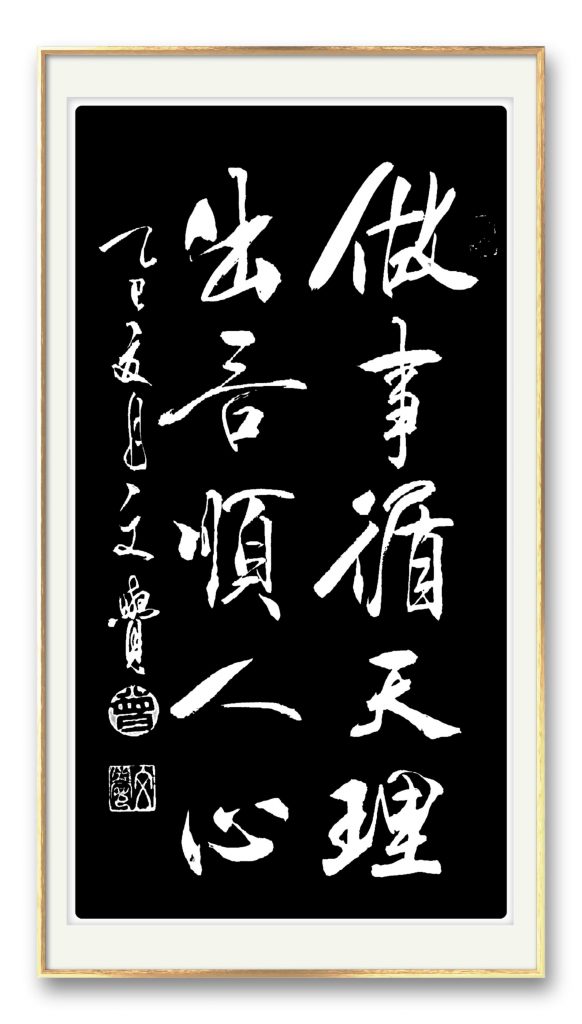 做事循天理
出言順人心
乙巳夏月文覺
曾